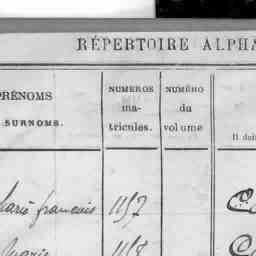 RÉPERTOIRE ALPHA
PRÉNOMS
SURNOMS.
NUMEROS
ma-
tricules.
NUMÉRO
du
volume
Il doit
Marie francois 1157
Marie 1158